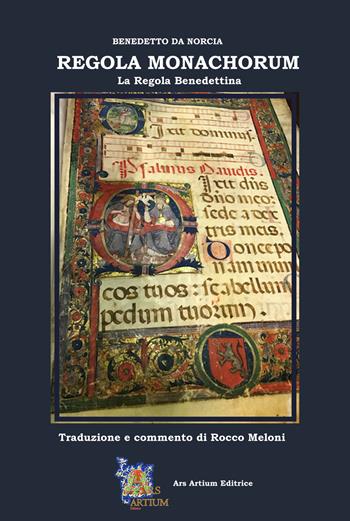 BENEDETTO DA NORCIA
REGOLA MONACHORUM
La Regola Benedettina
Dixit dominus.
Psalmus Dauidis.
Dixit dñs
Dño meo:
sede a dex
tris meis.
Donec po
nam inimi
cos tuos: scabellum
pedum tuorum.
Traduzione e commento di Rocco Meloni
ARS
ARTIUM
Ars Artium Editrice